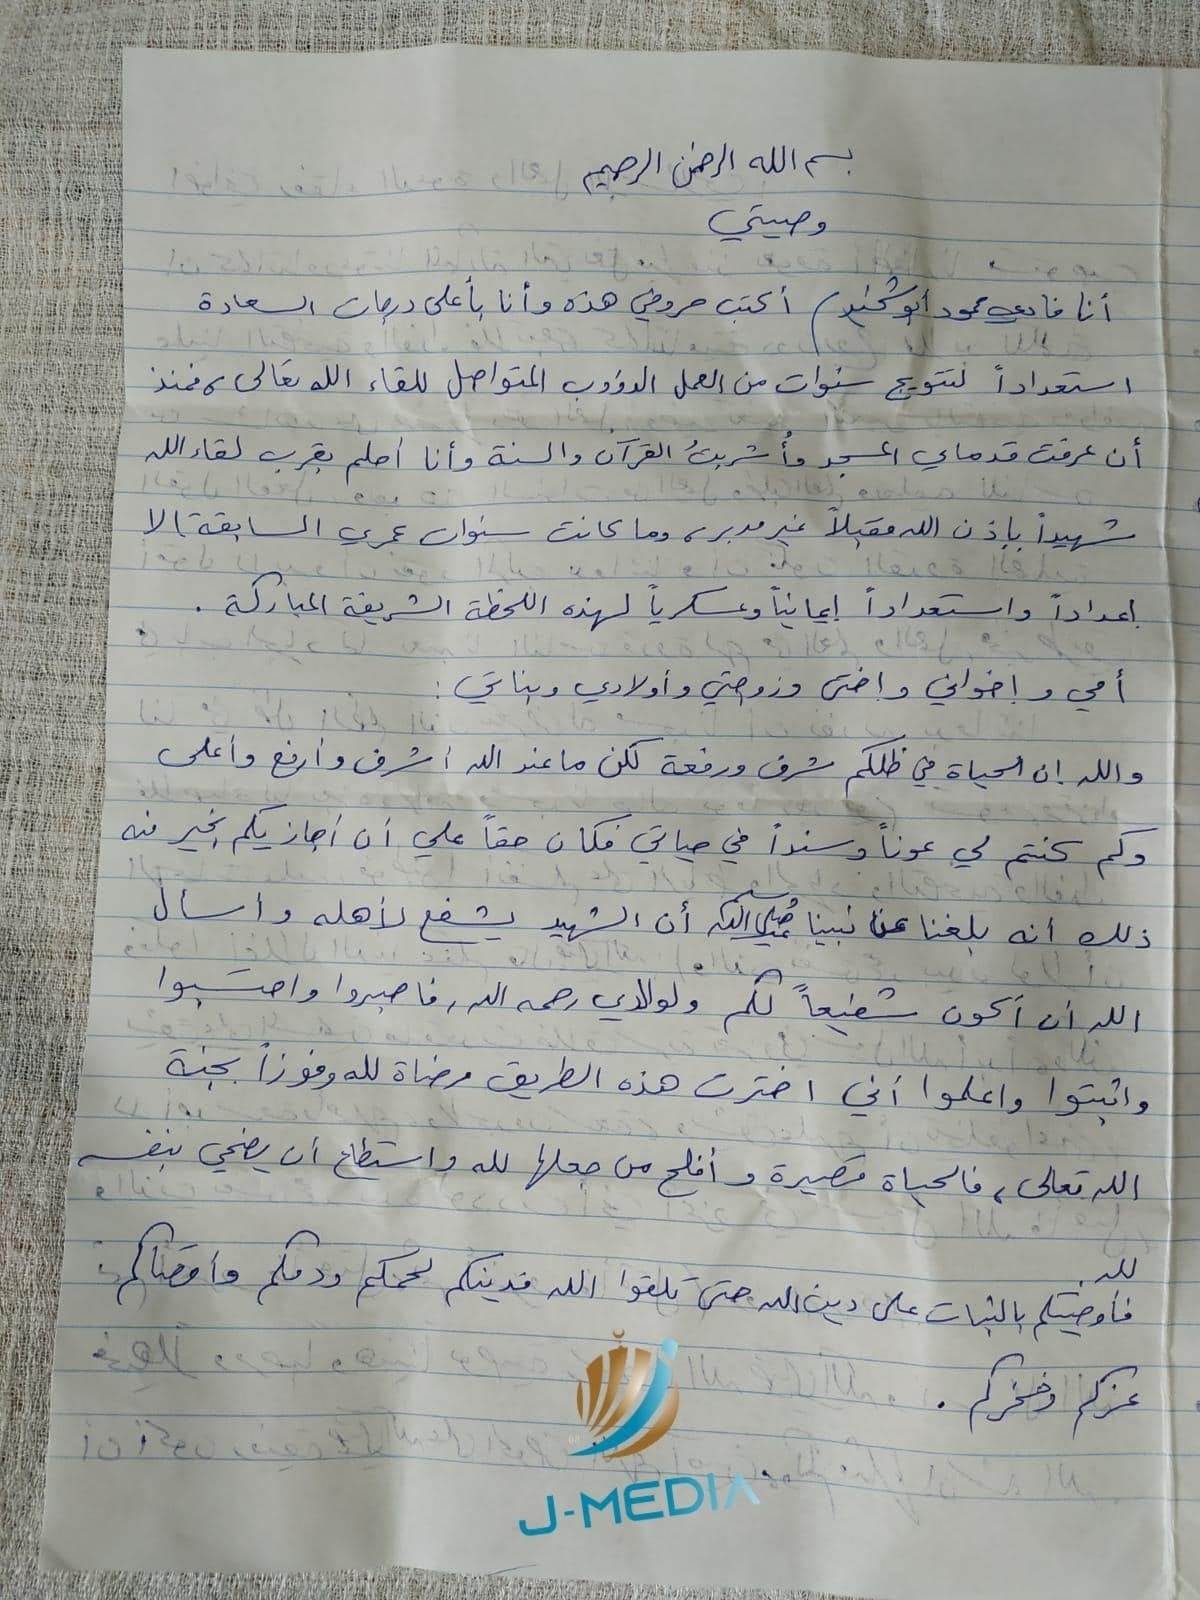 بسم الله الرحمن الرحيم
وصيتي
أنا فادي محمود أبو شخيدم أكتب حروفي هذه وأنا بأعلى درجات السعادة
استعداداً لتتويج سنوات من العمل الدؤوب المتواصل للقاء الله تعالى، فمنذ
أن عرفت قدماي المسجد وأُشربتُ القرآن والسنة وأنا أحلم بقرب لقاء الله
شهيداً بإذن الله مقبلاً غير مدبر، وما كانت سنوات عمري السابقة إلا
إعداداً واستعداداً إيمانياً وعسكرياً لهذه اللحظة الشريفة المباركة .
أمي وإخواني وأختي وزوجتي وأولادي وبناتي :
والله إن الحياة في ظلكم شرف ورفعة لكن ما عند الله أشرف وأرفع وأعلى
وكم كنتم لي عوناً وسنداً في حياتي فكان حقاً علي أن أجازيكم بخير منه
ذلك أنه بلغنا عن نبينا ﷺ أن الشهيد يشفع لأهله وأسأل
الله أن أكون شفيعاً لكم ولوالدي رحمه الله، فاصبروا واحتسبوا
واثبتوا واعلموا أني اخترت هذه الطريق مرضاة لله وفوزاً بجنة
الله تعالى، فالحياة قصيرة وأفلح من جعلها لله واستطاع أن يضحي بنفسه
لله.
فأوصيتكم بالثبات على دين الله حتى تلقوا الله فدينكم لحمكم ودمكم وأقصاكم
عزكم وفخركم .
J-MEDIA